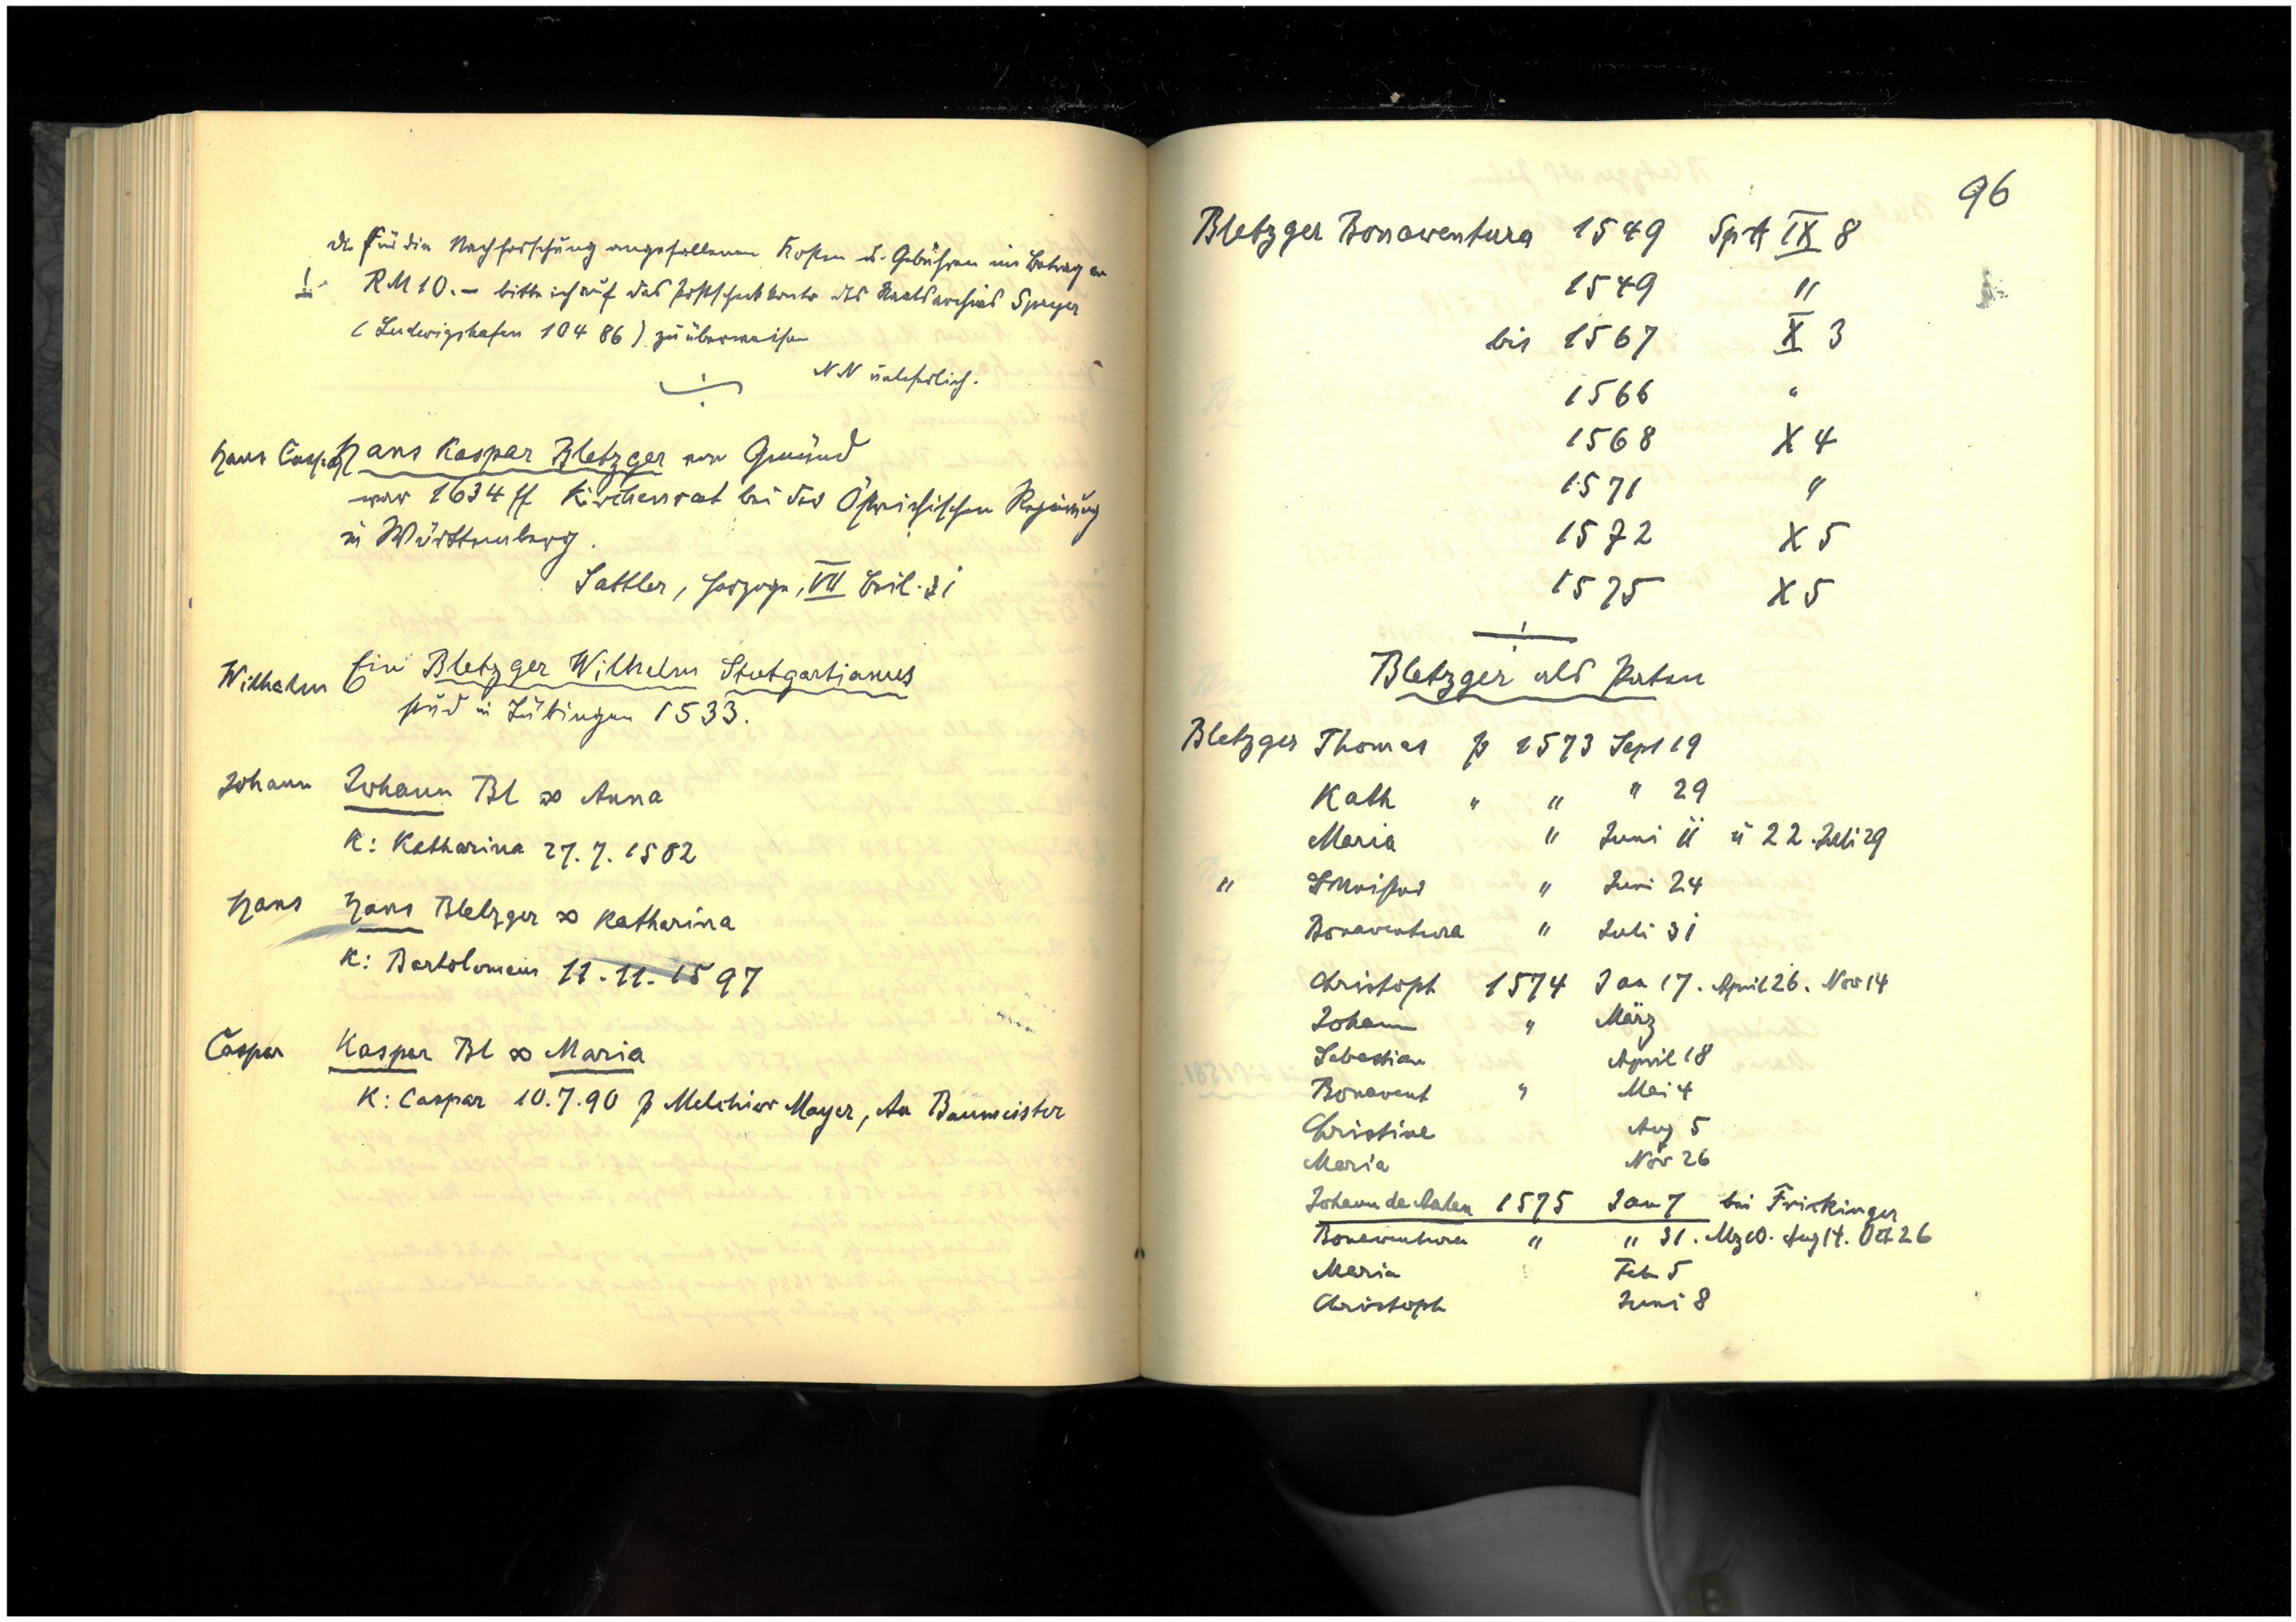 Die für die Nachforschung angefallenen Kosten u. Gebühren im Betrag von
!- RM 10.— bitte ich auf das Postscheckkonto des Staatsarchivs Speyer
(Ludwigshafen 104 86) zu überweisen
NN unleserlich.
Hans Caspar Hans Kaspar Bletzger von Gmünd
war 1634 ff Kirchenrat bei der Östreichischen Regierung
in Württemberg.
Sattler, Herzoge, VII Beil. 31
Wilhelm Ein Bletzger Wilhelm Stutgartianus
stud in Tübingen 1533.
Johann Johann Bl ∞ Anna
K: Katharina 27.7.1582
Hans Hans Bletzger ∞ Katharina
K: Bartolomeus 11.11.1597
Caspar Kaspar Bl ∞ Maria
K: Caspar 10.7.90 p Melchior Mayer, An Baumeister
96
Bletzger Bonaventura 1549 SpA IX 8
1549 "
bis 1567 X 3
1566 "
1568 X 4
1571 "
1572 X 5
1575 X 5
Bletzger als Paten
Bletzger Thomas p 1573 Sept 19
Kath " " " 29
Maria " Juni 11 u 22. Juli 29
" " Juni 24
Bonaventura " Juli 31
Christoph 1574 Jan 17. April 26. Nov 14
Johann " März
Sebastian April 18
Bonavent " Mai 4
Christine Aug 5
Maria Nov 26
Johann de Aalen 1575 Jan 7 bei Frickinger
Bonaventura " " 31. Mz 10. Aug 14. Okt 26
Maria Feb 5
Christoph Juni 8